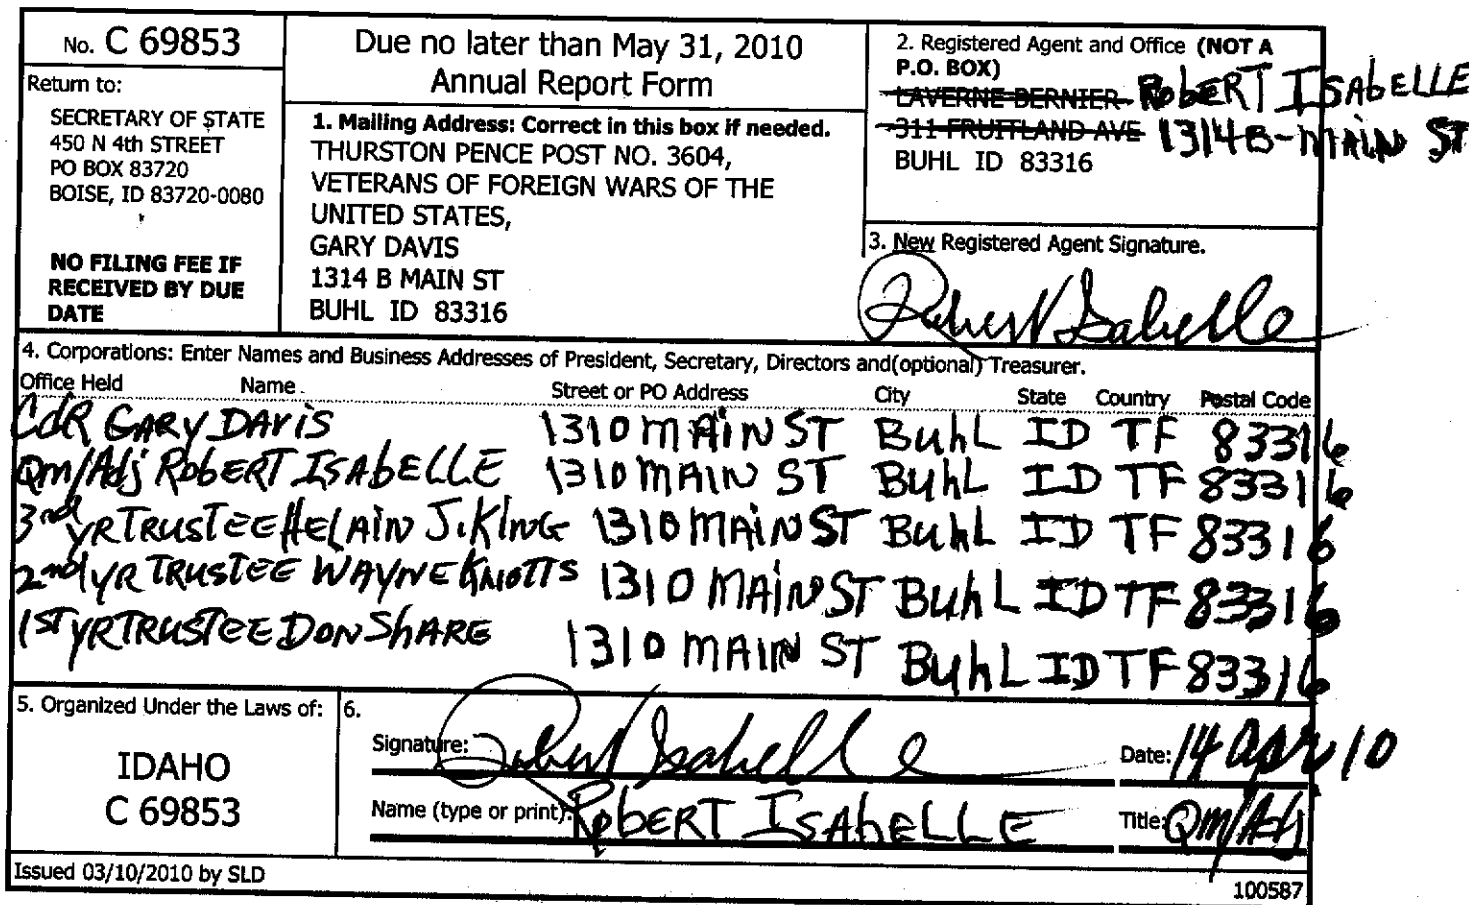 No. C 69853
Return to:
SECRETARY OF STATE
450 N 4th STREET
PO BOX 83720
BOISE, ID 83720-0080
NO FILING FEE IF
RECEIVED BY DUE
DATE
Due no later than May 31, 2010
Annual Report Form
1. Mailing Address: Correct in this box if needed.
THURSTON PENCE POST NO. 3604,
VETERANS OF FOREIGN WARS OF THE
UNITED STATES,
GARY DAVIS
1314 B MAIN ST
BUHL ID 83316
2. Registered Agent and Office (NOT A
P.O. BOX)
LAVERNE BERNIER RobERT ISAbELLE
311 FRUITLAND AVE 1314 B-MAIN ST
BUHL ID 83316
3. New Registered Agent Signature.
Robert Isabelle
4. Corporations: Enter Names and Business Addresses of President, Secretary, Directors and(optional) Treasurer.
Office Held Name Street or PO Address City State Country Postal Code
CdR GARY DAViS 1310 MAiN ST BuhL ID TF 83316
Qm/Adj RobERT ISAbELLE 1310 MAIN ST BuhL ID TF 83316
3rd YR TRUSTEE HELAIN J. KING 1310 MAiN ST BuhL ID TF 83316
2nd YR TRUSTEE WAYNE KNOTTS 1310 MAiN ST BuhL ID TF 83316
1ST YR TRUSTEE DON ShARE 1310 MAIN ST BuhL ID TF 83316
5. Organized Under the Laws of:
IDAHO
C 69853
6.
Signature: Robert Isabelle Date: 14 apr 10
Name (type or print): RobERT ISAbELLE Title: Qm/Adj
Issued 03/10/2010 by SLD
100587